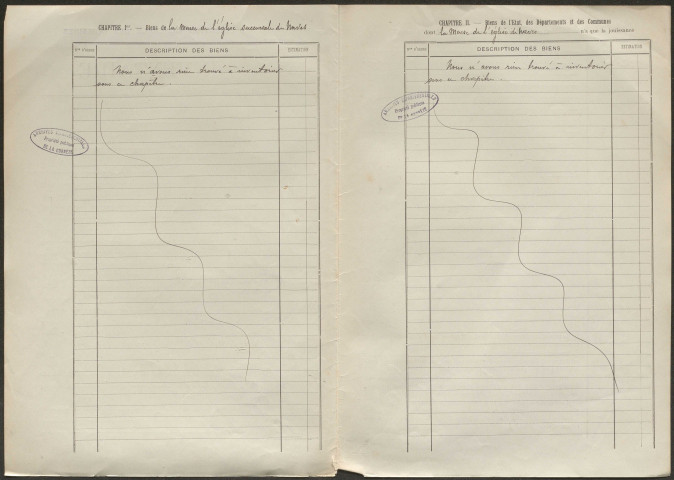 CHAPITRE Ier. — Biens de la Mense de l'église succursale de
N° D'ORDRE DESCRIPTION DES BIENS ESTIMATION
Nous n'avons rien trouvé à inventorier
sous ce chapitre.
ARCHIVES DÉPARTEMENTALES
Propriété publique
DE LA CHARENTE
CHAPITRE II. — Biens de l'État, des Départements et des Communes
dont la Mense de l'église de n'a que la jouissance
N° D'ORDRE DESCRIPTION DES BIENS ESTIMATION
Nous n'avons rien trouvé à inventorier
sous ce chapitre.
Propriété publique